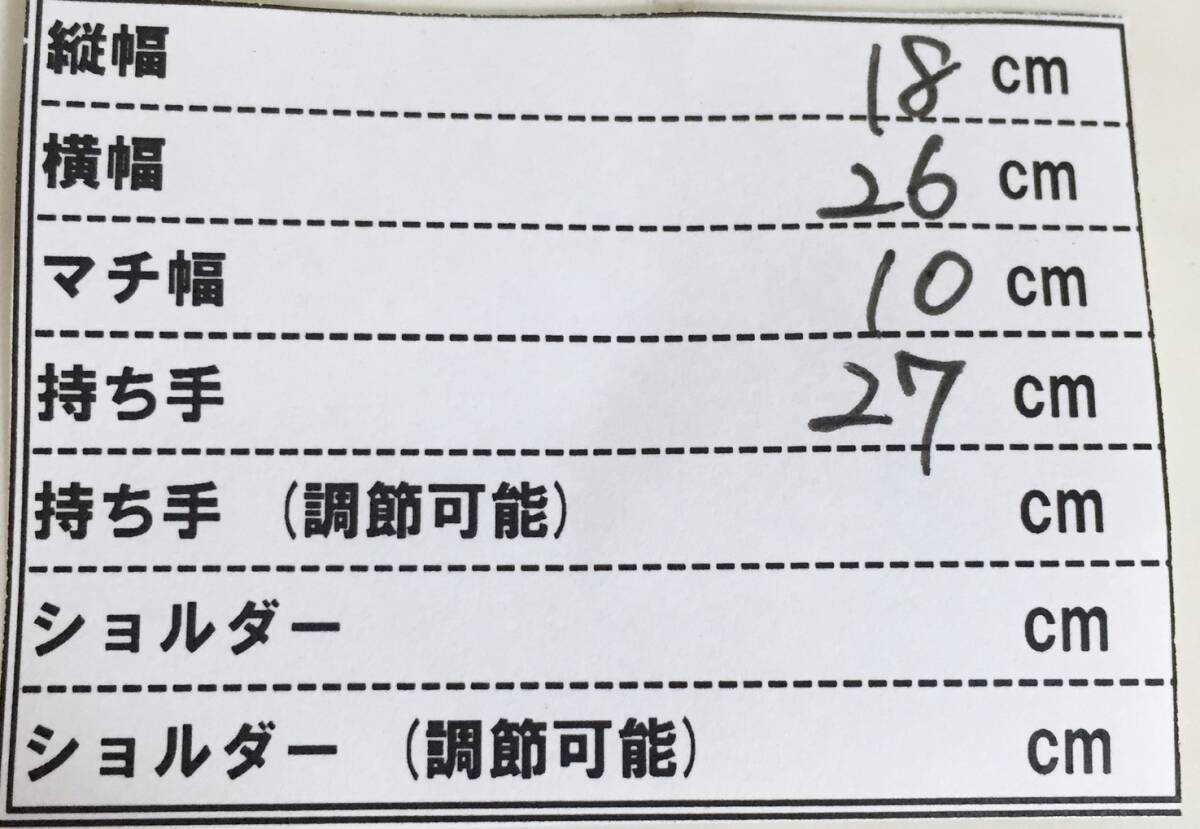 縦幅 18 cm
横幅 26 cm
マチ幅 10 cm
持ち手 27 cm
持ち手 (調節可能) cm
ショルダー cm
ショルダー (調節可能) cm